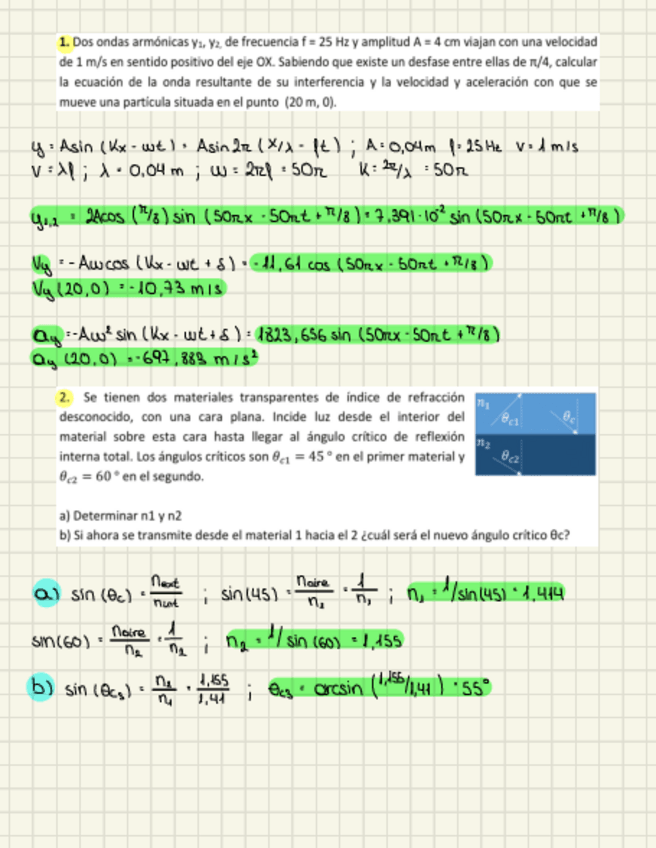 1. Dos ondas armónicas y₁, y₂, de frecuencia f = 25 Hz y amplitud A = 4 cm viajan con una velocidad
de 1 m/s en sentido positivo del eje OX. Sabiendo que existe un desfase entre ellas de π/4, calcular
la ecuación de la onda resultante de su interferencia y la velocidad y aceleración con que se
mueve una partícula situada en el punto (20 m, 0).
y = Asin (Kx - wt) = Asin2π (x/λ - ft) ; A = 0,04m f = 25Hz v = 1 m/s
v = λf ; λ = 0,04 m ; w = 2πf = 50π K = 2π/λ = 50π
y₁,₂ = 2Acos (π/8) sin (50πx - 50πt + π/8) = 7,391·10⁻² sin (50πx - 50πt + π/8)
Vy = -Awcos (Kx - wt + δ) = -11,61 cos (50πx - 50πt + π/8)
Vy (20,0) = -10,73 m/s
ay = -Aw² sin (Kx - wt + δ) = 1823,656 sin (50πx - 50πt + π/8)
ay (20,0) = -697,883 m/s²
2. Se tienen dos materiales transparentes de índice de refracción
desconocido, con una cara plana. Incide luz desde el interior del
material sobre esta cara hasta llegar al ángulo crítico de reflexión
interna total. Los ángulos críticos son θc1 = 45 ° en el primer material y
θc2 = 60 ° en el segundo.
n₁ θc1 θc
n₂ θc2
a) Determinar n1 y n2
b) Si ahora se transmite desde el material 1 hacia el 2 ¿cuál será el nuevo ángulo crítico θc?
a) sin (θc) = next/nint ; sin(45) = naire/n₁ = 1/n₁ ; n₁ = 1/sin(45) = 1,414
sin(60) = naire/n₂ = 1/n₂ ; n₂ = 1/sin (60) = 1,155
b) sin (θc₃) = n₂/n₁ = 1,155/1,41 ; θc₃ = arcsin (1,155/1,41) = 55°